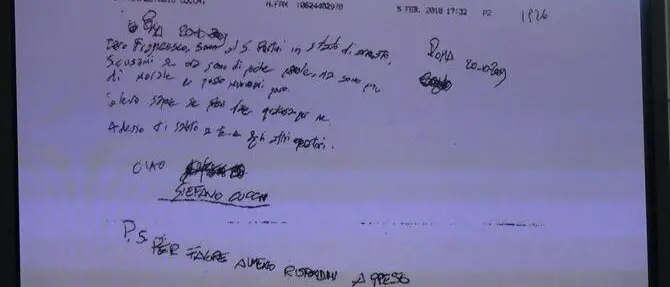 N.FAX :10624402970 5 FEB. 2010 17:32 P2 1926
ROMA 20-10-2009
Caro Francesco, sono al S. Pertini in stato di arresto, ROMA 20-10-2009
Scusami se sono di poche parole, ma sono giù
di morale e posso muovermi poco
volevo sapere se puoi fare qualcosa per me.
Adesso ti saluto a te e agli altri operatori.
CIAO
STEFANO CUCCHI
P.S. PER FAVORE ALMENO RISPONDIMI A PRESTO